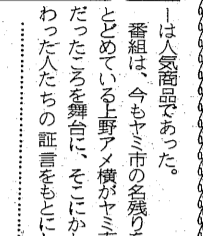 ーは人気商品であった。
番組は、今もヤミ市の名残りを
とどめている上野アメ横がヤミ市
だったころを舞台に、そこにか
わった人たちの証言をもとに